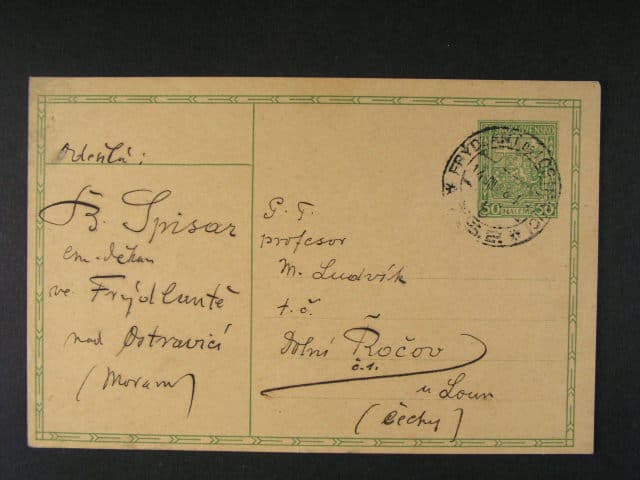 Odesílá:
Fr. Spisar
em. děkan
ve Frýdlantě
nad Ostravicí
(Morava)
P. T.
profesor
M. Ludvík
t. č.
Dolní Ročov
č. 1.
u Loun
(Čechy)
FRYDLANT
50 50